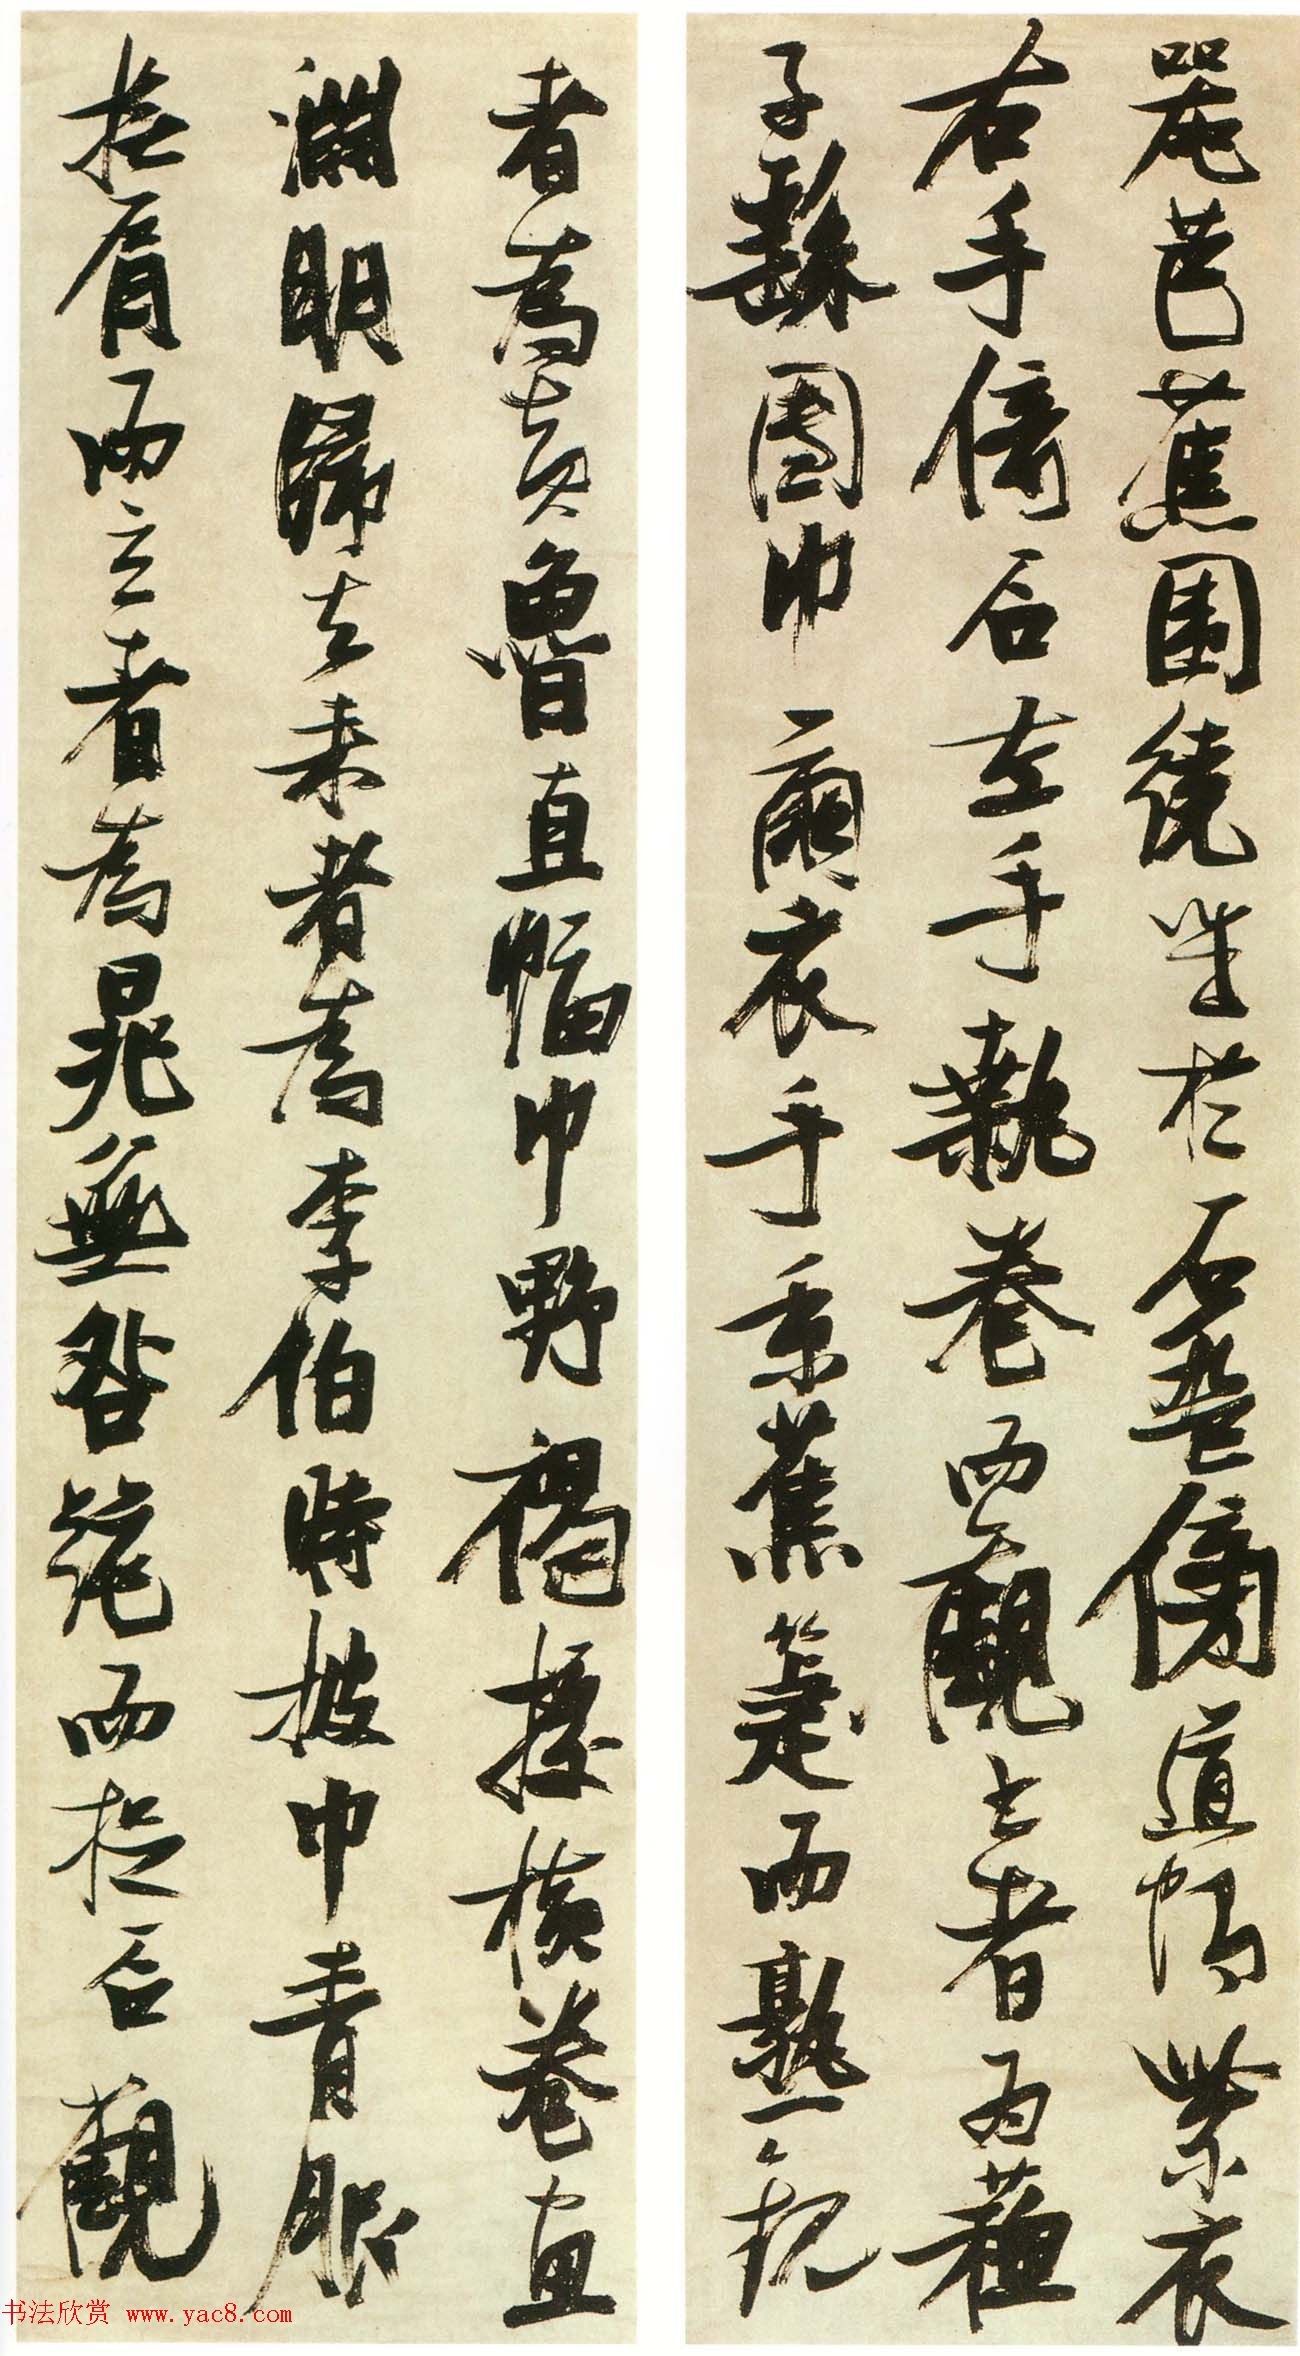 芭蕉圍繞坐於石盤傍道帽紫衣
右手倚石左手執卷而觀書者為蘇
子繇團巾繭衣手秉蕉箑而熟視
者為黃魯直幅巾野褐據橫卷畫
淵明歸去來者為李伯時披巾青服
撫肩而立者為晁無咎跪而捉石觀
书法欣赏 www.yac8.com